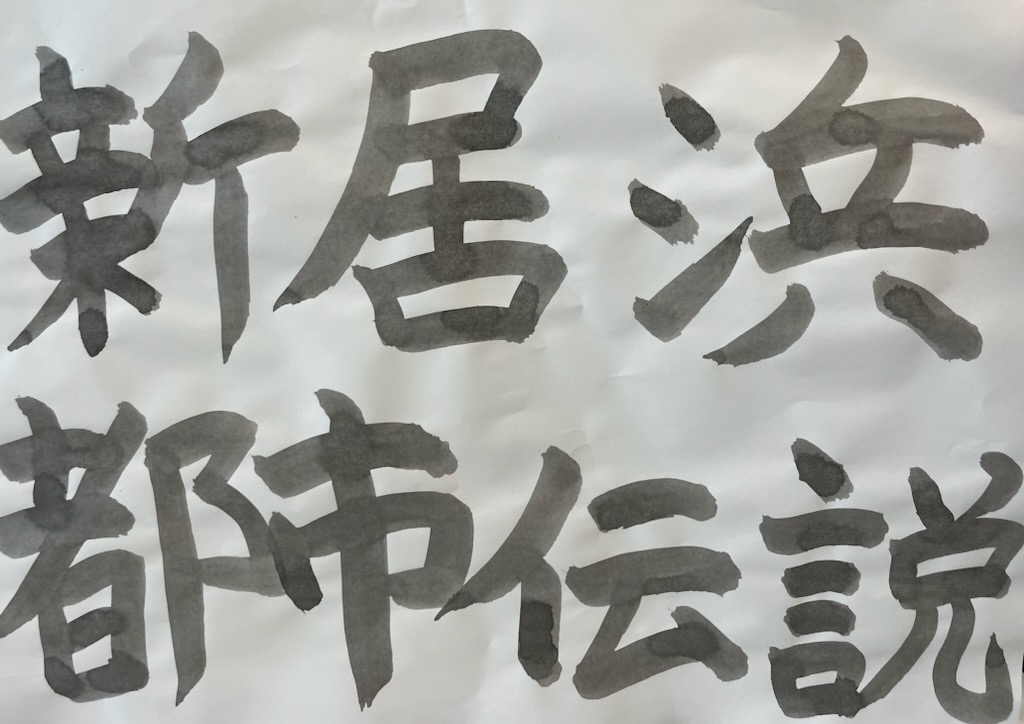 新居浜
都市伝説